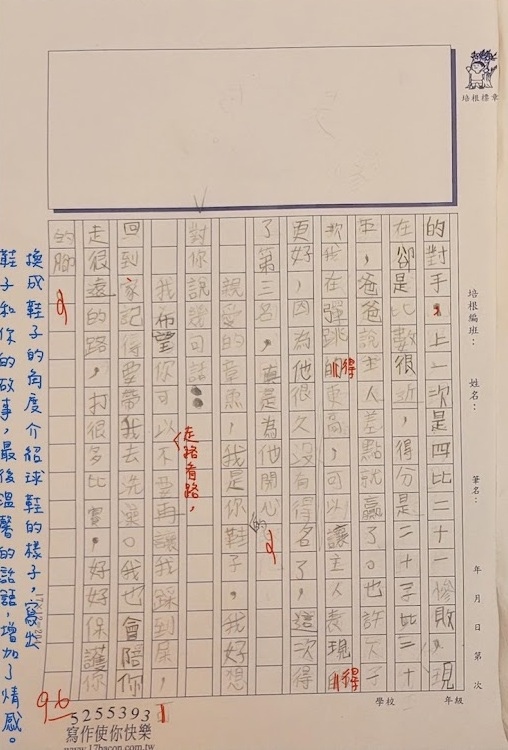 培根標章
培根編班：
姓名：
筆名：
年 月 日 第 次
學校 年級
的對手，上一次是四比二十慘敗，現
在卻是比數很近，得分是二十
平，爸爸說主人差點就贏了。也許下
次我在彈跳得更高，可以讓主人表現得
更好，因為他很久沒有得名了，這次得
了第三名，真是為他開心的
親愛的章魚，我是你鞋子，我好想
對你說幾句話：
我希望你可以不要再讓我踩到屎，
走路看路，
回到家記得要帶我去洗澡。我也會陪你
走很遠的路，打很多比賽，好好保護你
的腳
換成鞋子的角度介紹球鞋的樣子，寫出
鞋子和你的故事，最後溫馨的話語，增加了情感。
96
52553931
寫作使你快樂
www.17bacon.com.tw